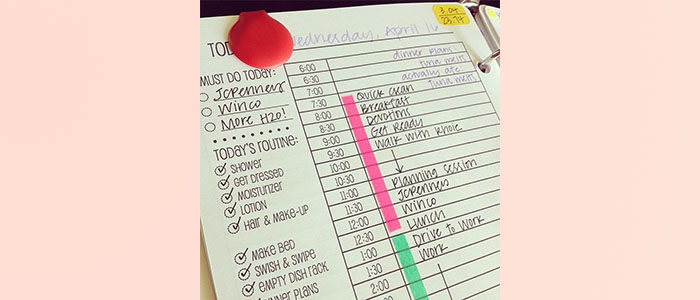 TOD
Wednesday, April 16
3.04
23.74
dinner plans
tuna melts
actually ate
tuna melts
MUST DO TODAY:
JCPenneys
Winco
More H2O!
TODAY'S ROUTINE:
SHOWER
GET DRESSED
MOISTURIZER
LOTION
HAIR & MAKE-UP
MAKE BED
SWISH & SWIPE
EMPTY DISH RACK
DINNER PLANS
6:00
6:30
7:00
7:30 Quick clean
8:00 Breakfast
8:30 Devotions
9:00 Get Ready
9:30 Walk with
10:00
10:30 Planning session
11:00 JCPenneys
11:30 Winco
12:00 Lunch
12:30 Drive to Work
1:00 Work
1:30
2:00